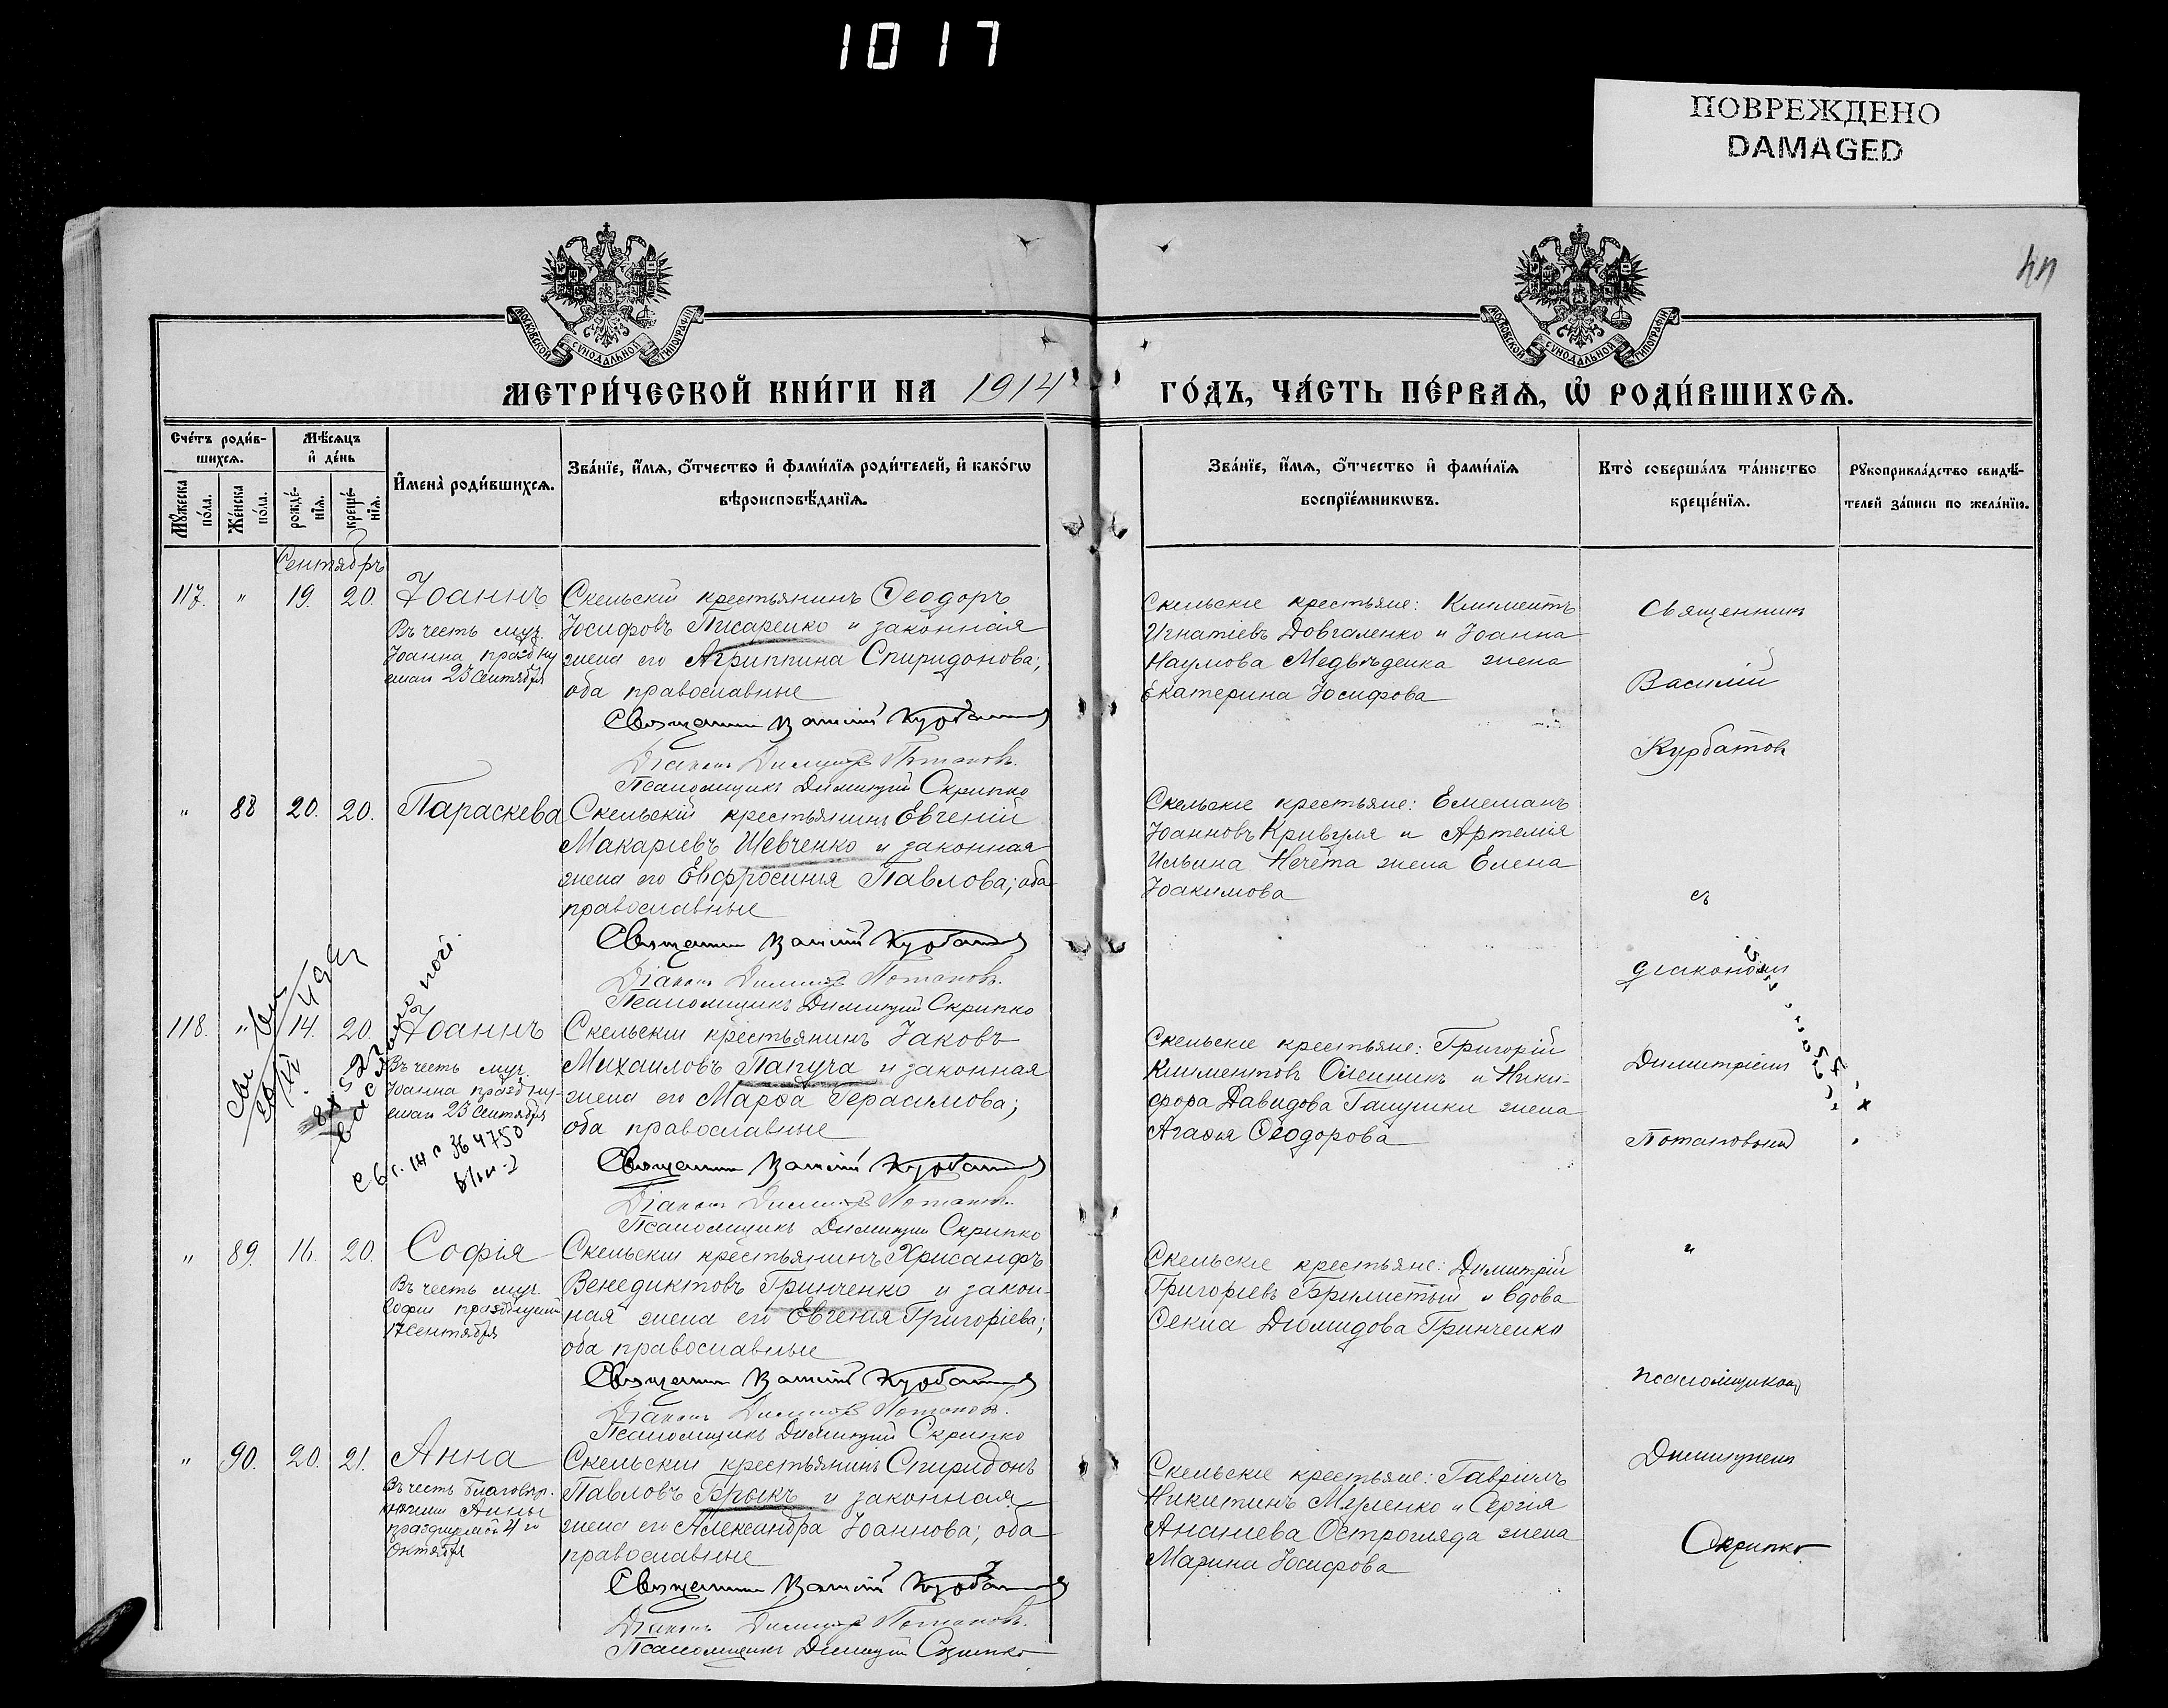 1017
ПОВРЕЖДЕНО
DAMAGED
44
МОСКОВСКОЙ СѴНОДАЛЬНОЙ ТИПОГРАФІИ
МОСКОВСКОЙ СѴНОДАЛЬНОЙ ТИПОГРАФІИ
МЕТРИ́ЧЕСКОЙ КНИ́ГИ НА 1914 ГО́ДЪ, ЧА́СТЬ ПЕ́РВАѦ, Ѡ҆ РОДИ́ВШИХСѦ.
Сче́тъ роди́в-
шихсѧ.
Мꙋ́жеска по́ла.
Же́нска по́ла.
Мѣ́сѧцъ
и҆ де́нь
рожде́-
нїѧ.
креще́-
нїѧ.
И҆мена̀ роди́вшихсѧ.
Зва́нїе, и҆́мѧ, ѻ҆́тчество и҆ фами́лїѧ роди́телей, и҆ како́гѡ
вѣроисповѣ́данїѧ.
Зва́нїе, и҆́мѧ, ѻ҆́тчество и҆ фами́лїѧ
воспрїе́мникѡвъ.
Кто̀ соверша́лъ та́инство
креще́нїѧ.
Рꙋкоприкла́дство свидѣ́-
телей за́писи по жела́нїю.
Сентябрь
117. " 19. 20. Іоаннъ
Въ честь муч.
Іоанна праздну
емаго 23 Сентября
Скельскій крестьянинъ Ѳеодоръ
Іосифовъ Писаренко и законная
жена его Агриппина Спиридонова;
оба православные
Священникъ Василій Курбатовъ
Діаконъ Димитрій Потаповъ.
Псаломщикъ Димитрій Скрипко
Скельскіе крестьяне: Климентъ
Игнатіевъ Довгаленко и Іоанна
Наумова Медвѣденка жена
Екатерина Іосифова
Священникъ
Василій
Курбатовъ
" 88 20. 20. Параскева
Скельскій крестьянинъ Евгеній
Макаріевъ Шевченко и законная
жена его Евфросинія Павлова; оба
православные
Священникъ Василій Курбатовъ
Діаконъ Димитрій Потаповъ.
Псаломщикъ Димитрій Скрипко
Скельскіе крестьяне: Емеліанъ
Іоанновъ Кривуля и Артемія
Ильина Нечёта жена Елена
Іоакимова
съ
діакономъ
118. " 14. 20. Іоаннъ
Въ честь муч.
Іоанна праздну-
емаго 23 Сентября
Скельскій крестьянинъ Іаковъ
Михаиловъ Папуча и законная
жена его Марѳа Герасимова;
оба православные
Священникъ Василій Курбатовъ
Діаконъ Димитрій Потаповъ.
Псаломщикъ Димитрій Скрипко
Скельскіе крестьяне: Григорій
Климентовъ Олейникъ и Ники-
фора Давидова Галушки жена
Агаѳія Ѳеодорова
Димитріемъ
Потаповымъ
" 89. 16. 20. Софія
Въ честь муч.
Софіи празднуемой
17 Сентября
Скельскій крестьянинъ Хрисанфъ
Венедиктовъ Гринченко и закон-
ная жена его Евгенія Григоріева;
оба православные
Священникъ Василій Курбатовъ
Діаконъ Димитрій Потаповъ.
Псаломщикъ Димитрій Скрипко
Скельскіе крестьяне: Димитрій
Григоріевъ Брилистый и вдова
Ѳекла Діомидова Гринченко
и
псаломщикомъ
" 90. 20. 21. Анна
Въ честь благовѣр.
княгини Анны
празднуемой 4 го
Октября
Скельскій крестьянинъ Спиридонъ
Павловъ Брыкъ и законная
жена его Александра Іоаннова; оба
православные
Священникъ Василій Курбатовъ
Діаконъ Димитрій Потаповъ.
Псаломщикъ Димитрій Скрипко
Скельскіе крестьяне: Гавріилъ
Никитинъ Мяленко и Сергія
Ананіева Остроглядa жена
Марина Іосифова
Димитріемъ
Скрипко